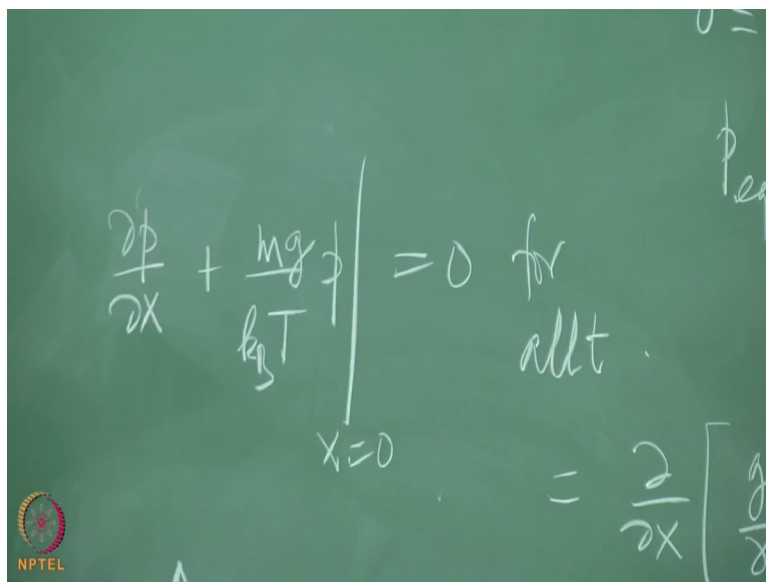 0 =
p_eq
∂p/∂x + mg/k_BT p | x=0 = 0 for
all t.
= ∂/∂x [ g/γ
NPTEL